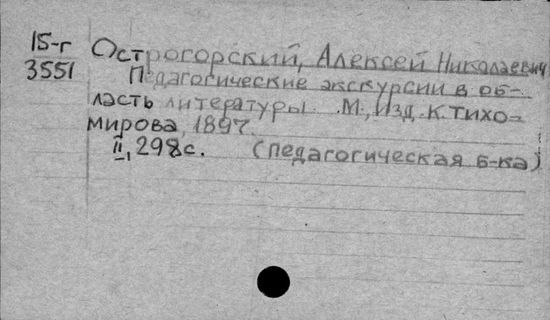 15-г
3551
Острогорский, Алексей Николаевич
Педагогические экскурсии в об-
ласть литературы. М., Изд. К. Тихо-
мирова, 1897.
II, 298 с. (Педагогическая б-ка)